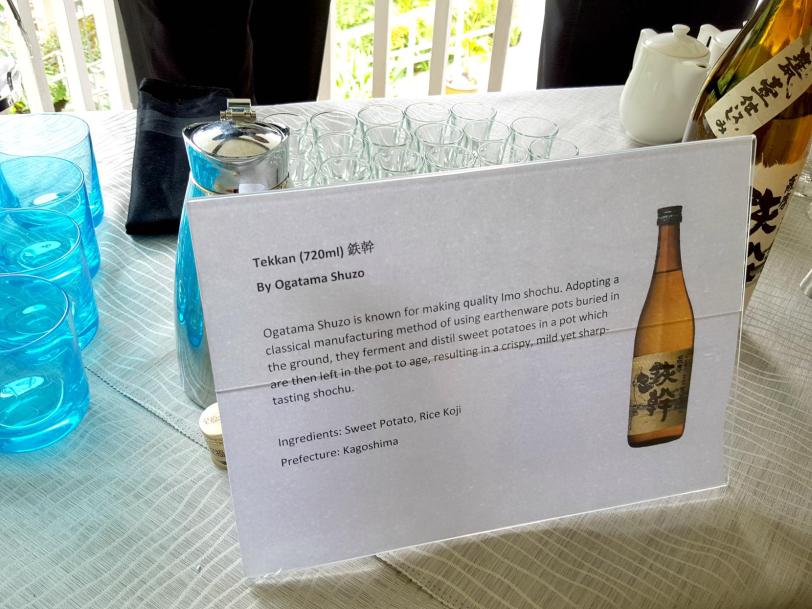 Tekkan (720ml) 鉄幹
By Ogatama Shuzo
Ogatama Shuzo is known for making quality Imo shochu. Adopting a
classical manufacturing method of using earthenware pots buried in
the ground, they ferment and distil sweet potatoes in a pot which
are then left in the pot to age, resulting in a crispy, mild yet sharp-
tasting shochu.
Ingredients: Sweet Potato, Rice Koji
Prefecture: Kagoshima
鉄幹